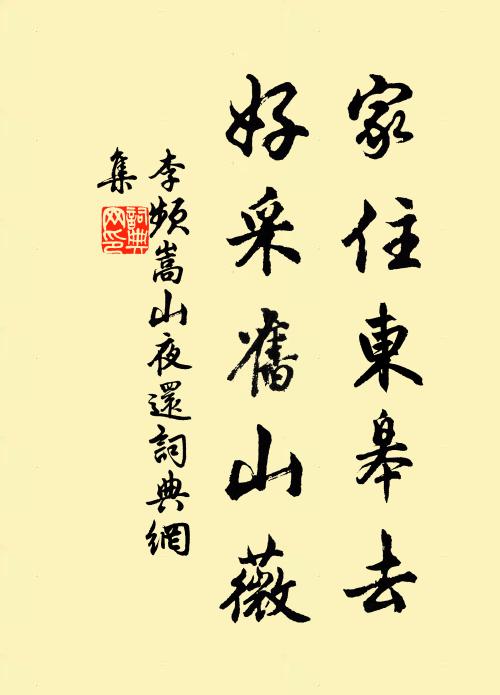 家住東皋去
好采舊山薇
李頻嵩山夜還詞典網
集
詞典
网印